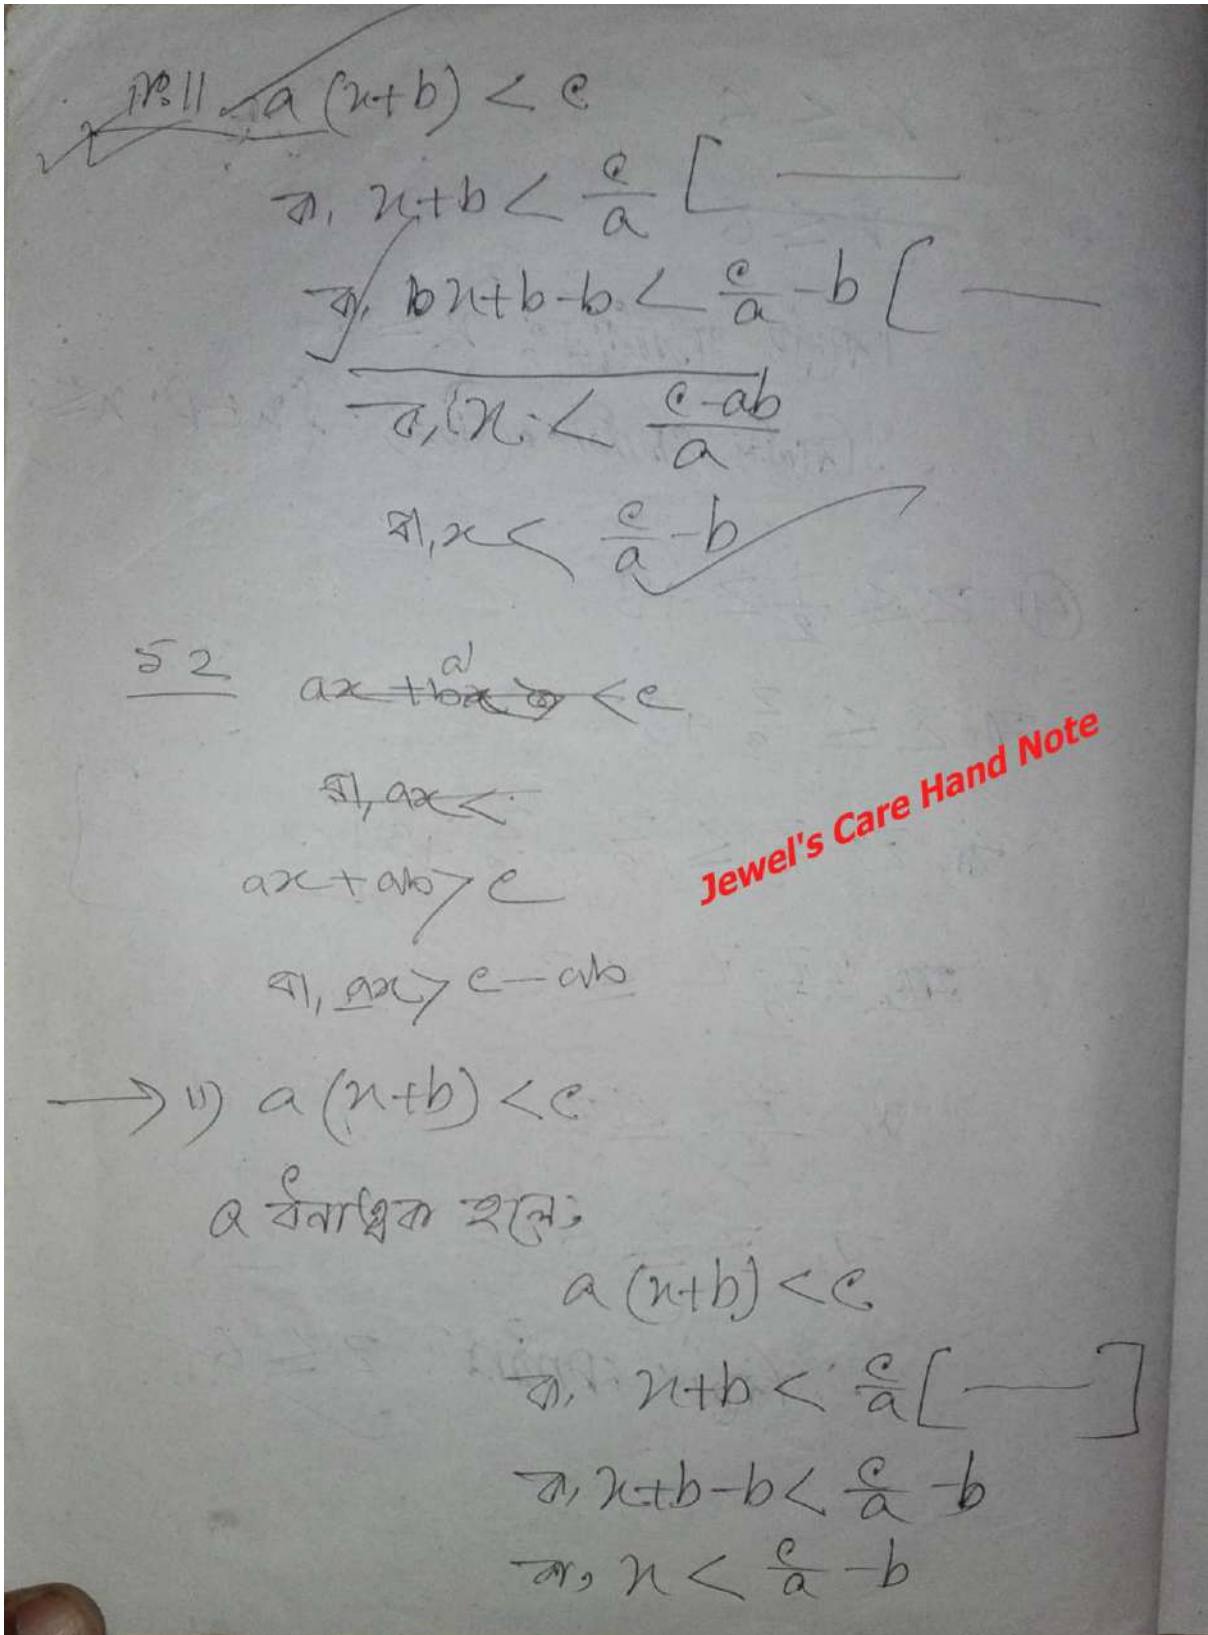 নং 11 a (x+b) < c
বা, x+b < c/a [ —
বা, bx+b-b < c/a - b [ —
বা, x < c-ab/a
বা, x < c/a - b
52 ax + bx < c
বা, ax <
ax + ab > c
বা, ax > c - ab
Jewel's Care Hand Note
→ ii) a (x+b) < c
a ধনাত্বক হলে,
a (x+b) < c
বা, x+b < c/a [ — ]
বা, x+b-b < c/a - b
বা, x < c/a - b